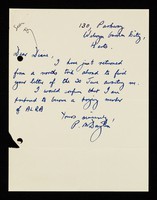 130, Parkway
Welwyn Garden City,
Herts.
Dear Diane,
I have just returned
from a months tour abroad to find
your letter of the 30 June awaiting me.
I would confirm that I am
prepared to become a buying member
of ALRA
Yours sincerely
P.